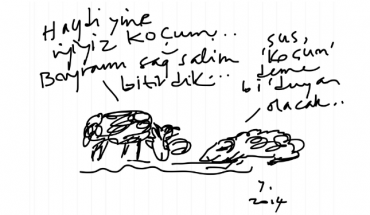 Haydi yine
iyiyiz koçum..
Bayramı sağ salim
bitirdik..
sus,
'koçum'
deme
bi duyan
olacak..
7.
2014